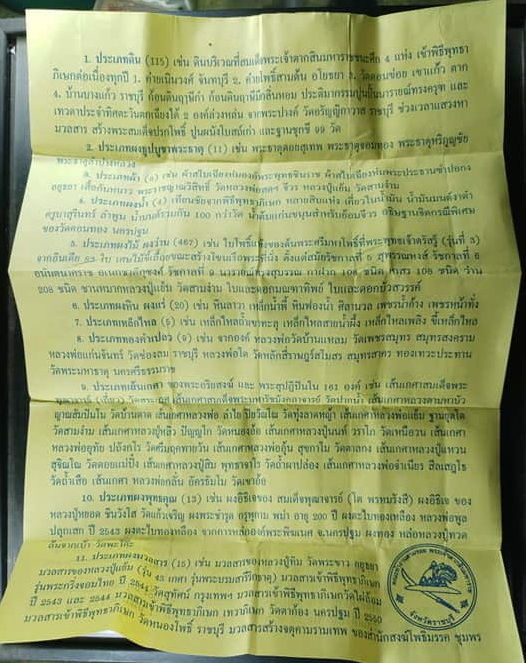 1. ประเภทดิน (115) เช่น ดินบริเวณที่สมเด็จพระเจ้าตากสินมหาราชชนะศึก 4 แห่ง เข้าพิธีพุทธา
ภิเษกต่อเนื่องทุกปี 1. ค่ายเนินวงศ์ จันทบุรี 2. ค่ายโพธิ์สามต้น อโยธยา 3. วัดดอนข่อย เขาแก้ว ตาก
4. บ้านบางแก้ว ราชบุรี ก้อนดินฤาษีกำ ก้อนดินฤาษีมีกลิ่นหอม ประติมากรรมปูนปั้นนารายณ์ทรงครุฑ และ
เทวดาประจำทิศตะวันตกเฉียงใต้ 2 องค์ล่วงหล่น จากพระปรางค์ วัดอรัญญิกาวาส ราชบุรี ช่วงเวลาแสวงหา
มวลสาร สร้างพระสมเด็จปรกโพธิ์ ปูนผนังโบสถ์เก่า และฐานชุกชี 99 วัด
2. ประเภทผงธูปบูชาพระธาตุ (11) เช่น พระธาตุดอยสุเทพ พระธาตุจอมทอง พระธาตุหริภุญชัย
พระธาตุลำปางหลวง
3. ประเภทผ้า (8) เช่น ผ้าสไบเฉียงห่มองค์พระพุทธชินราช ผ้าสไบเฉียงห่มพระประธานชำปอกง
อยุธยา เสื้อกันหนาว พระราชญาณวิสิทธิ์ วัดหลวงพ่อสดฯ จีวร หลวงปู่แย้ม วัดสามง่าม
4. ประเภทน้ำ (4) เทียนชัยจากพิธีพุทธาภิเษก หลายสิบแห่ง เคี่ยวในน้ำมัน น้ำมันมนต์งาดำ
ครูบาสุรินทร์ ลำพูน น้ำมนต์รวมกัน 100 กว่าวัด น้ำต้มแก่นขนุนสำหรับย้อมจีวร อธิษฐานจิตกรณีพิเศษ
ของวัดดอนทอง นครปฐม
5. ประเภทผงไม้ ผงว่าน (467) เช่น ใบโพธิ์แห้งของต้นพระศรีมหาโพธิ์ที่พระพุทธเจ้าตรัสรู้ (รุ่นที่ 3)
จากอินเดีย 23 ใบ เศษไม้ขี้เลื่อยขณะสร้างโขนเรือพระที่นั่ง ตั้งแต่สมัยรัชกาลที่ 5 สุพรรณหงส์ รัชกาลที่ 6
อนันตนาคราช อเนกชาติภุชงค์ รัชกาลที่ 9 นารายณ์ทรงสุบรรณ กาฝาก 108 ชนิด เกสร 108 ชนิด ว่าน
208 ชนิด ชานหมากหลวงปู่แย้ม วัดสามง่าม ใบและดอกมณฑาทิพย์ ใบและดอกบัวสวรรค์
6. ประเภทผงหิน ผงแร่ (20) เช่น หินลาวา เหล็กน้ำพี้ หินฟองน้ำ ศิลานวล เพชรน้ำค้าง เพชรหน้าทั่ง
7. ประเภทเหล็กไหล (5) เช่น เหล็กไหลถ้ำเขาทะลุ เหล็กไหลสายน้ำผึ้ง เหล็กไหลเพลิง ขี้เหล็กไหล
8. ประเภททองคำเปลว (9) เช่น จากองค์ หลวงพ่อวัดบ้านแหลม วัดเพชรสมุทร สมุทรสงคราม
หลวงพ่อแก่นจันทร์ วัดช่องลม ราชบุรี หลวงพ่อโต วัดหลักสี่ราษฎร์สโมสร สมุทรสาคร ทองเทวะประทาน
วัดพระมหาธาตุ นครศรีธรรมราช
9. ประเภทเส้นเกศา ของพระอริยสงฆ์ และ พระสุปฏิปันใน 161 องค์ เช่น เส้นเกศาสมเด็จพระ
พุฒาจารย์ (เกี่ยว) วัดสระเกศ เส้นเกศาสมเด็จพระมหารัชมังคลาจารย์ วัดปากน้ำ เส้นเกศาหลวงตามหาบัว
ญาณสัมปันโน วัดบ้านตาด เส้นเกศาหลวงพ่อ ลำไย ปิยวัณโณ วัดทุ่งลาดหญ้า เส้นเกศาหลวงพ่อแย้ม ฐานยุตโต
วัดสามง่าม เส้นเกศาหลวงปู่หลิว ปัญญโก วัดหนองอ้อ เส้นเกศาหลวงปู่นนท์ วราโภ วัดเหนือวน เส้นเกศา
หลวงพ่ออุทัย ปภังกโร วัดศรีมฤคทายวัน เส้นเกศาหลวงพ่ออุ้น สุขกาโม วัดตาลกง เส้นเกศาหลวงปู่แหวน
สุจิณโณ วัดดอยแม่ปั๋ง เส้นเกศาหลวงปู่สิม พุทธาจาโร วัดถ้ำผาปล่อง เส้นเกศาหลวงพ่อจำเนียร สีลเสฏโฐ
วัดถ้ำเสือ เส้นเกศาหลวงพ่อกลั่น อัคธัมโม วัดเขาอ้อ
10. ประเภทผงพุทธคุณ (13) เช่น ผงอิธิเจของ สมเด็จพุฒาจารย์ (โต พรหมรังสี) ผงอิธิเจ ของ
หลวงปู่หยอด ชินวังโส วัดแก้วเจริญ ผงพระชำรุด กรุพุกาม พม่า อายุ 200 ปี ผงตะใบทองเหลือง หลวงพ่อพูล
ปลุกเสก ปี 2543 ผงตะใบทองเหลือง จากการหล่อองค์พระพิฆเนศ จ.นครปฐม ผงทอง หล่อหลวงปู่ทวด
11. ประเภทผงมวลสาร (15) เช่น มวลสารของหลวงปู่ทิม วัดพระขาว อยุธยา
มวลสารของหลวงปู่แย้ม (รุ่น 43 เกศา รุ่นพระบรมสารีริกธาตุ) มวลสารเข้าพิธีพุทธาภิเษก
รุ่นพระกริ่งจอมไทย ปี 2544 วัดสุทัศน์ กรุงเทพฯ มวลสารเข้าพิธีพุทธาภิเษกวัดไผ่ล้อม
ปี 2543 และ 2544 มวลสารเข้าพิธีพุทธาภิเษก เทวาภิเษก วัดตาก้อง นครปฐม ปี 2550
มวลสารเข้าพิธีพุทธาภิเษก วัดหนองโพธิ์ ราชบุรี มวลสารสร้างจตุคามรามเทพ ของสำนักสงฆ์โพธิมรรค ชุมพร
จังหวัดราชบุรี